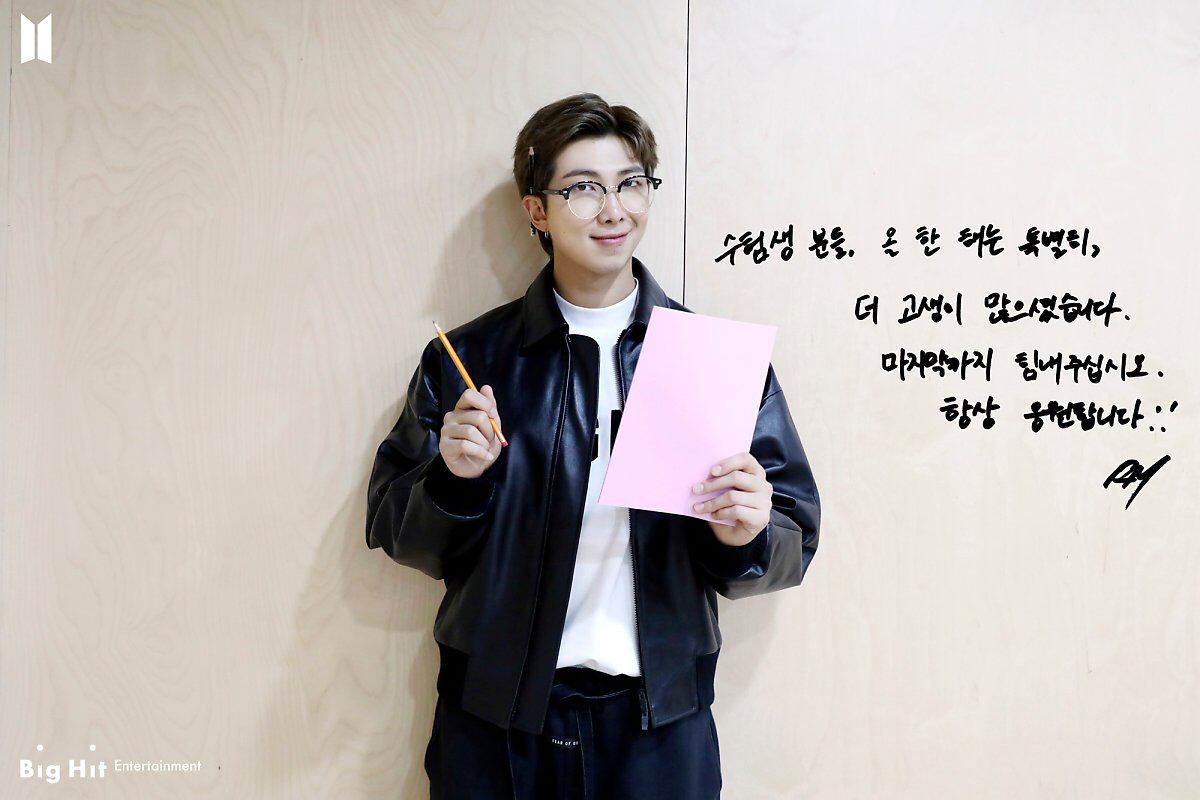 수험생 분들, 올 한 해는 특별히,
더 고생이 많으셨습니다.
마지막까지 힘내주십시오.
항상 응원합니다 :'
RM
Big Hit Entertainment
FEAR OF